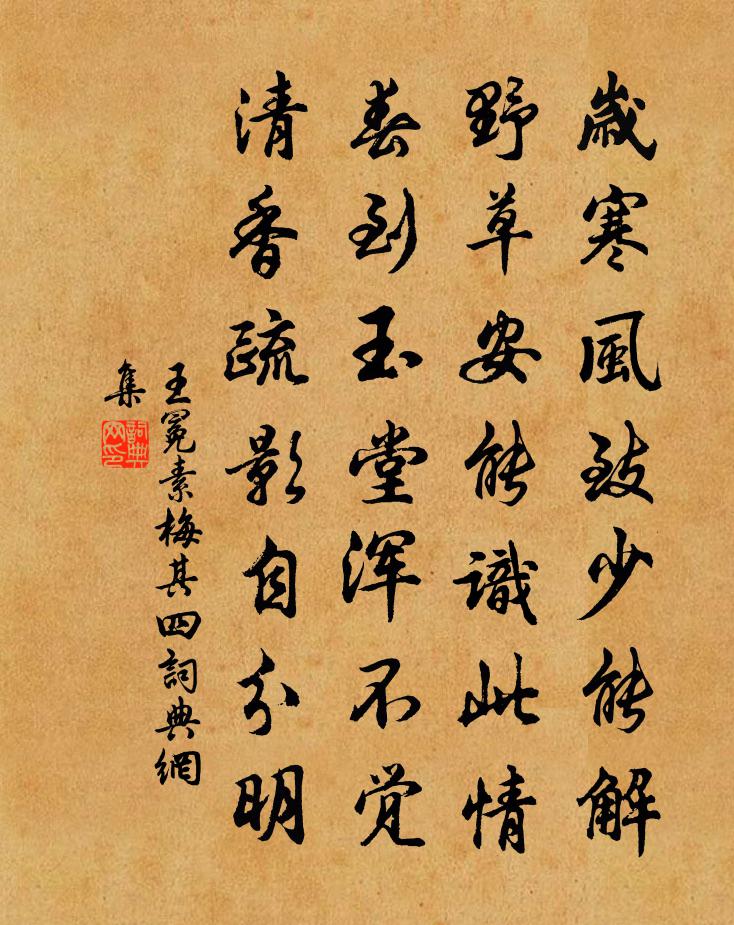 歲寒風致少能解
野草安能識此情
春到玉堂渾不覺
清香疏影自分明
王冕素梅其四詞典網
集
詞典
网印